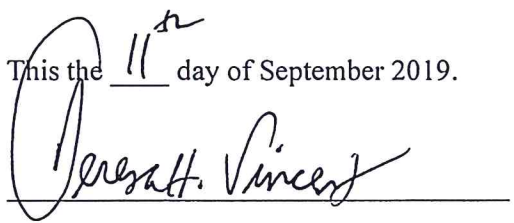 This the 11th day of September 2019.
Teresa H. Vincent